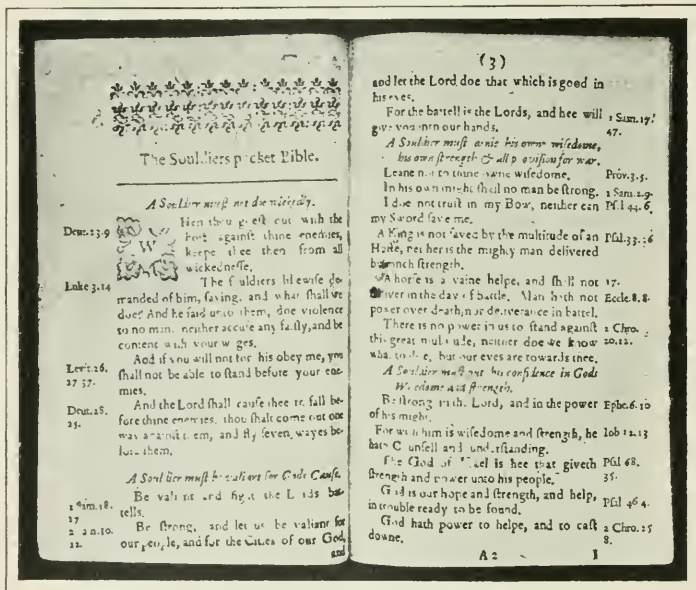 The Souldiers pocket Bible.
A Souldier must not doe wickedly.
Deut. 23.9 When thou goest out with the
host against thine enemies,
keepe thee then from all
wickednesse.
Luke 3.14 The souldiers likewise de-
manded of him, saying, and what shall we
doe? And he said unto them, doe violence
to no man, neither accuse any falsly, and be
content with your wages.
Levit. 26. And if you will not for this obey me, you
27 37. shall not be able to stand before your ene-
mies.
Deut. 28. And the Lord shall cause thee to fall be-
25. fore thine enemies, thou shalt come out one
way against them, and fly seven wayes be-
fore them.
A Souldier must be valiant for Gods Cause.
1 Sam. 18. Be valiant and fight the Lords bat-
17 tells.
2 Sam. 10. Be strong, and let us be valiant for
12. our people, and for the Cities of our God,
and
(3)
and let the Lord doe that which is good in
his eyes.
For the battell is the Lords, and hee will 1 Sam. 17.
give you into our hands. 47.
A Souldier must denie his owne wisedome,
his own strength & all provision for war.
Leane not to thine owne wisedome. Prov. 3.5.
In his own might shall no man be strong. 1 Sam. 2.9.
I doe not trust in my Bow, neither can Psal 44.6,
my Sword save me.
A King is not saved by the multitude of an Psal. 33.16
Hoste, neither is the mighty man delivered
by much strength.
A horse is a vaine helpe, and shall not 17.
deliver in the day of battle. Man hath not Eccle. 8.8.
power over death, nor deliverance in battel.
There is no power in us to stand against 2 Chro.
this great multitude, neither doe we know 20.12.
what to doe, but our eyes are towards thee.
A Souldier must put his confidence in Gods
Wisedome and strength.
Be strong in the Lord, and in the power Ephe. 6.10
of his might.
For with him is wisedome and strength, he Iob 12.13
hath Counsell and understanding.
The God of Israel is hee that giveth Psal 68.
strength and power unto his people. 35.
God is our hope and strength, and help, Psal 46 4.
in trouble ready to be found.
God hath power to helpe, and to cast 2 Chro. 25
downe. 8.
A 2 I